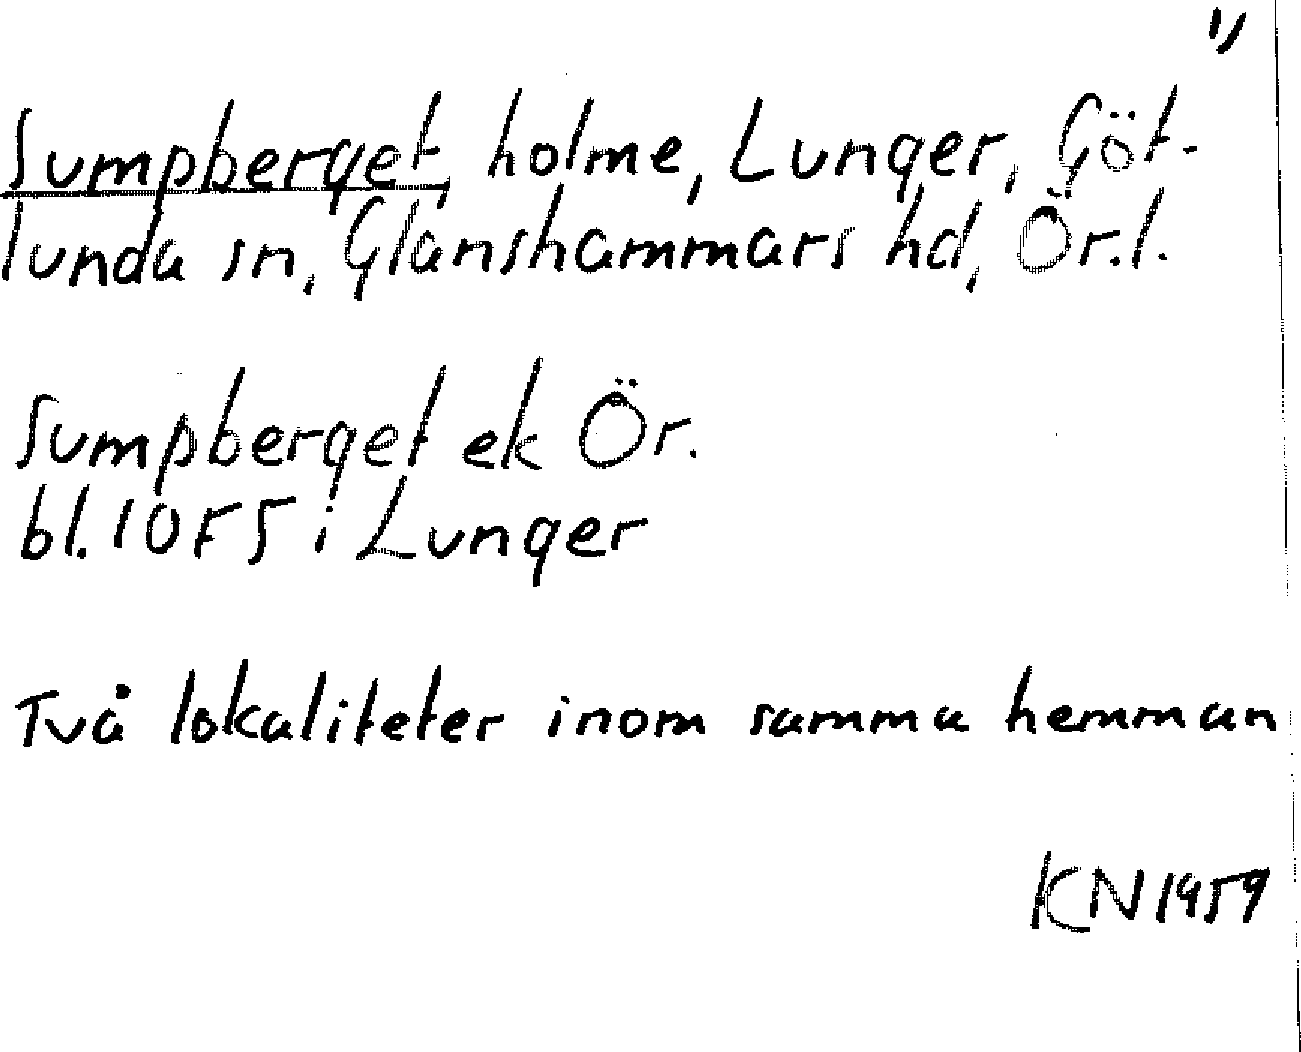 1)
Sumpberget, holme, Lunger, Göt-
lunda sn, Glanshammars hd, Ör.l.
Sumpberget ek Ör.
bl. 10F5 i Lunger
Två lokaliteter inom samma hemman
KN 1959